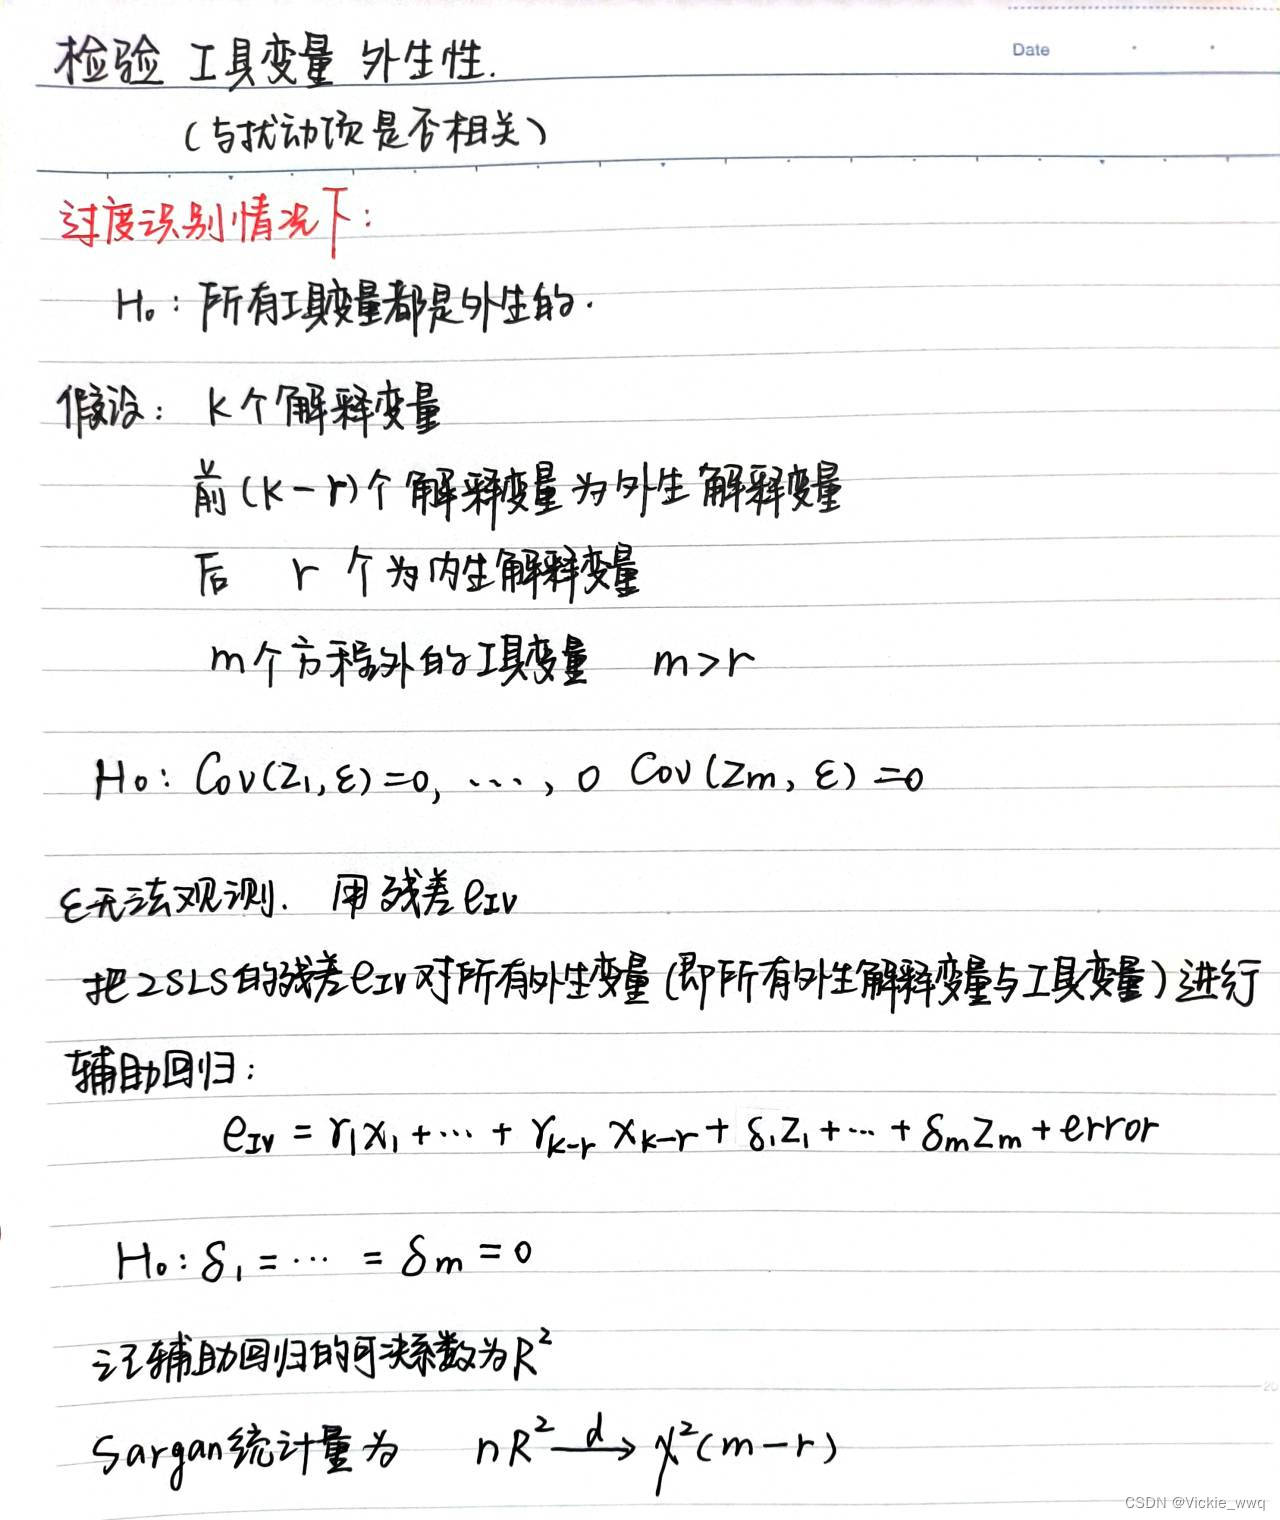 Date
检验 工具变量 外生性.
(与扰动项是否相关)
过度识别情况下:
H₀: 所有工具变量都是外生的.
假设: K个解释变量
前(K-r)个解释变量为外生解释变量
后 r 个为内生解释变量
m个方程外的工具变量 m>r
H₀: Cov(Z₁, ε)=0, ..., 0 Cov(Zm, ε)=0
ε无法观测. 用残差eIV
把2SLS的残差eIV对所有外生变量(即所有外生解释变量与工具变量)进行
辅助回归:
eIV = γ₁x₁+...+γk-r xk-r+δ₁Z₁+...+δmZm+error
H₀: δ₁=... =δm=0
记辅助回归的可决系数为R²
Sargan统计量为 nR² d→ χ²(m-r)
20
CSDN @Vickie_wwq